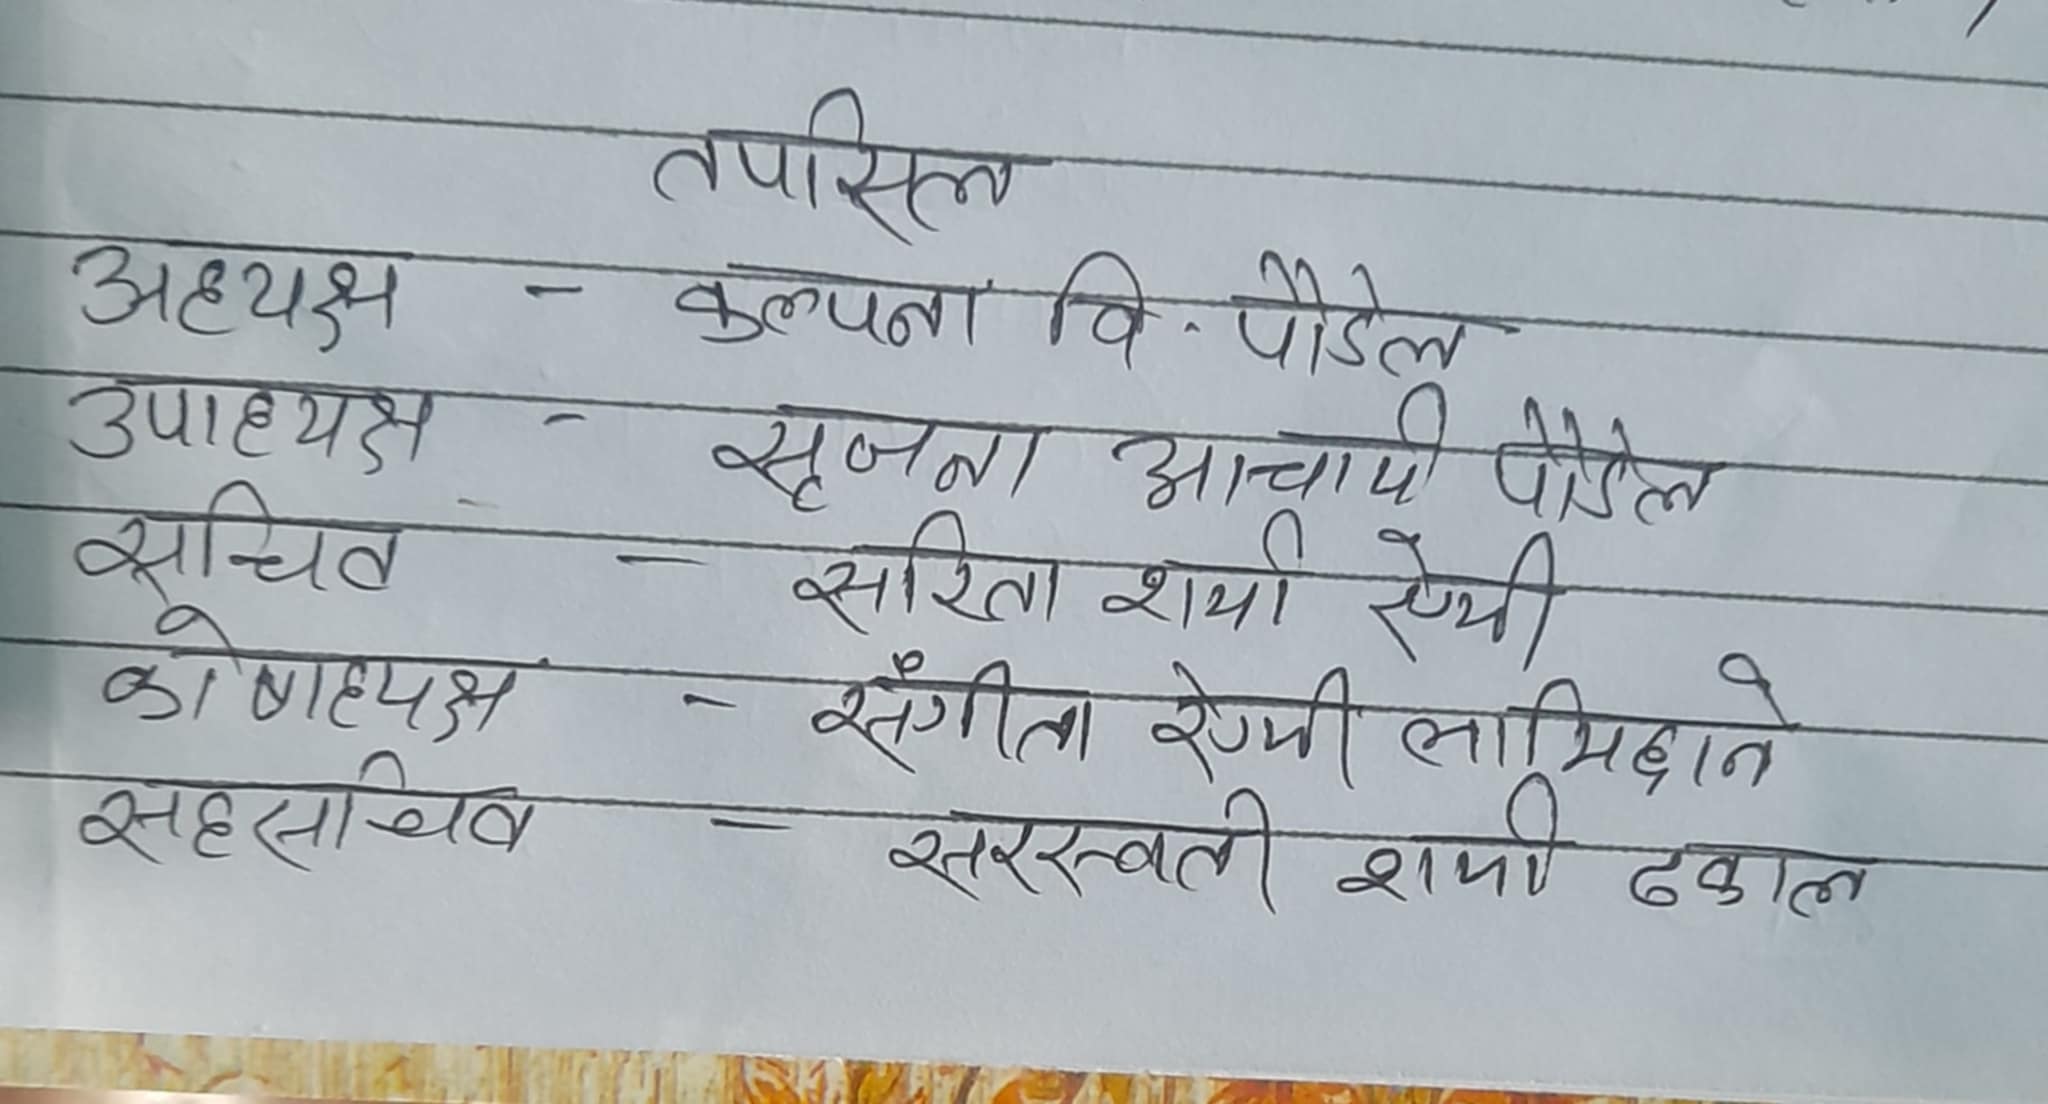 तपासिल
अध्यक्ष - कल्पना वि. पौडेल
उपाध्यक्ष - सृजना आचार्य पौडेल
सचिव - सरिता शर्मा रेग्मी
कोषाध्यक्ष - सँगीता रेग्मी लामिछाने
सहसचिव - सरस्वती शर्मा ढकाल